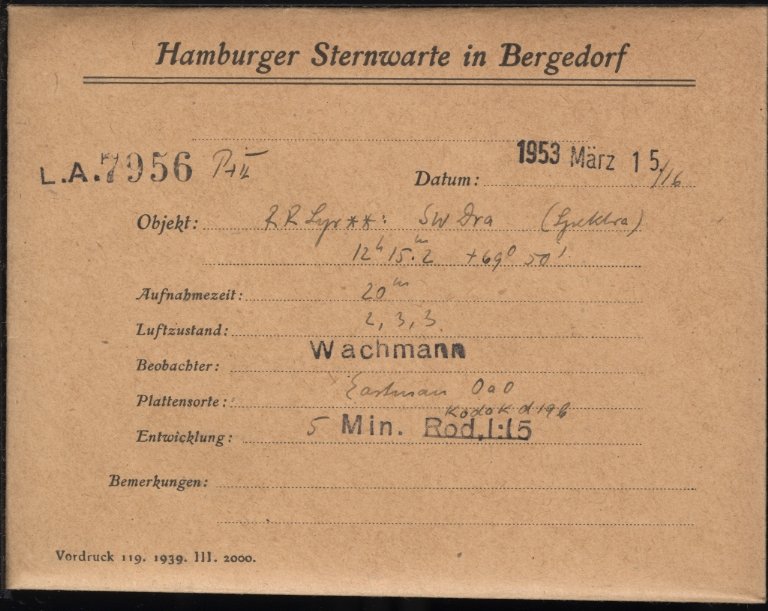 Hamburger Sternwarte in Bergedorf
L.A. 7956
Datum: 1953 März 15/16
Objekt: RR Lyr **: SW Dra (Spektra)
12h 15.m2 +69° 50'
Aufnahmezeit: 20m
Luftzustand: 2, 3, 3
Beobachter: Wachmann
Plattensorte: Eastman OaO
Kodak d19b
Entwicklung: 5 Min. Rod, 1:15
Bemerkungen:
Vordruck 119. 1939. III. 2000.